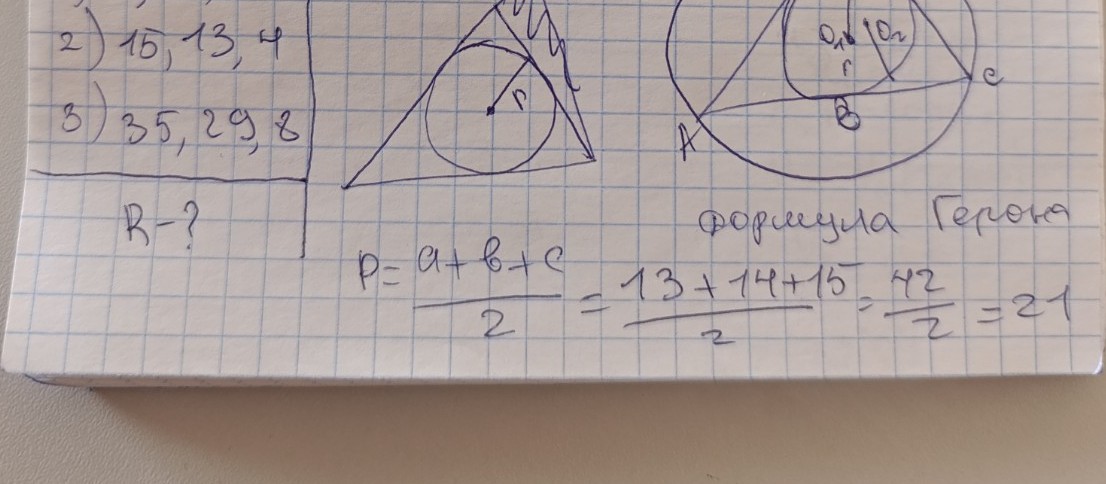 2) 15, 13, 4
3) 35, 29, 8
R-?
r
O₁ O₂
r
A
B
C
формула Герона
P = a+b+c / 2 = 13+14+15 / 2 = 42 / 2 = 21